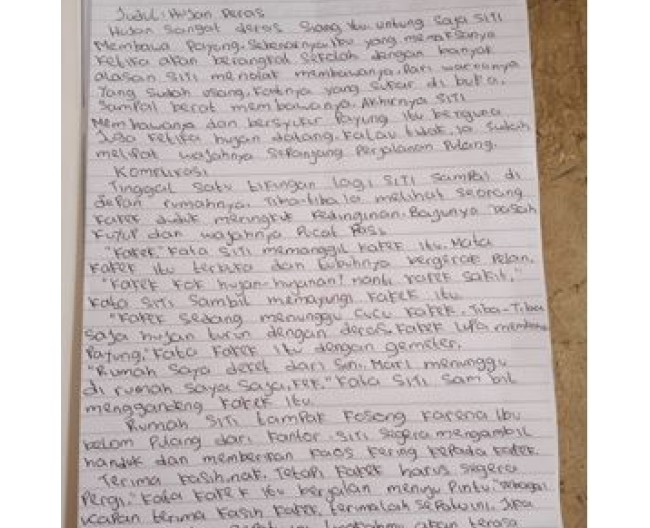 Judul: Hujan Deras
Hujan sangat deras siang itu, untung saja SiTi
Membawa Payong. Sebenarnya ibu yang memaksanya
ketika akan berangkat sekolah dengan banyak
alasan SiTi menolak membawanya, Dari warnanya
Yang sudah usang, Kainya yang sukar di buka.
Sampai berat membawanya. Akhirnya SiTi
Membawanya dan bersyukur Payung itu berguna
Juga ketika hujan datang. Kalau tidak, ia sudah
melipat wajahnya sepanjang Perjalanan Pulang.
Komplikasi
Tinggal satu tikungan lagi SiTi sampai di
depan rumahnya. Tiba-tiba ia melihat seorang
Kakek duduk meringkuk kedinginan. Bagunya basah
Kuyup dan wajahnya Pucat Pasi.
"Kakek," Kata SiTi memanggil Kakek itu. Mata
Kakek itu terbuka dan tubuhnya bergerak Pelan.
"Kakek kok hujan-hujanan? nanti kakek sakit."
Kata SiTi sambil memayungi Kakek itu.
"Kakek sedang menunggu cucu Kakek. Tiba-Tiba
saja hujan turun dengan deras. Kakek lupa membawa
Payung." Kata Kakek itu dengan gemeter.
"Rumah Saya deket dari Sini. Mari menunggu
di rumah saya saja, Kek." Kata SiTi sambil
menggandeng Kakek itu.
Rumah SiTi tampak Kosong Karena ibu
belom Pulang dari Kantor. SiTi segera mengambil
handuk dan memberikan Kaos Kering Kepada Kakek.
Terima Kasih, nak. Tetapi Kakek harus segera
Pergi," Kata Kakek itu berjalan menuju Pintu. "Sebagai
ucapan terima Kasih Kakek, terimalah sepatu ini. Jika
akan terasa